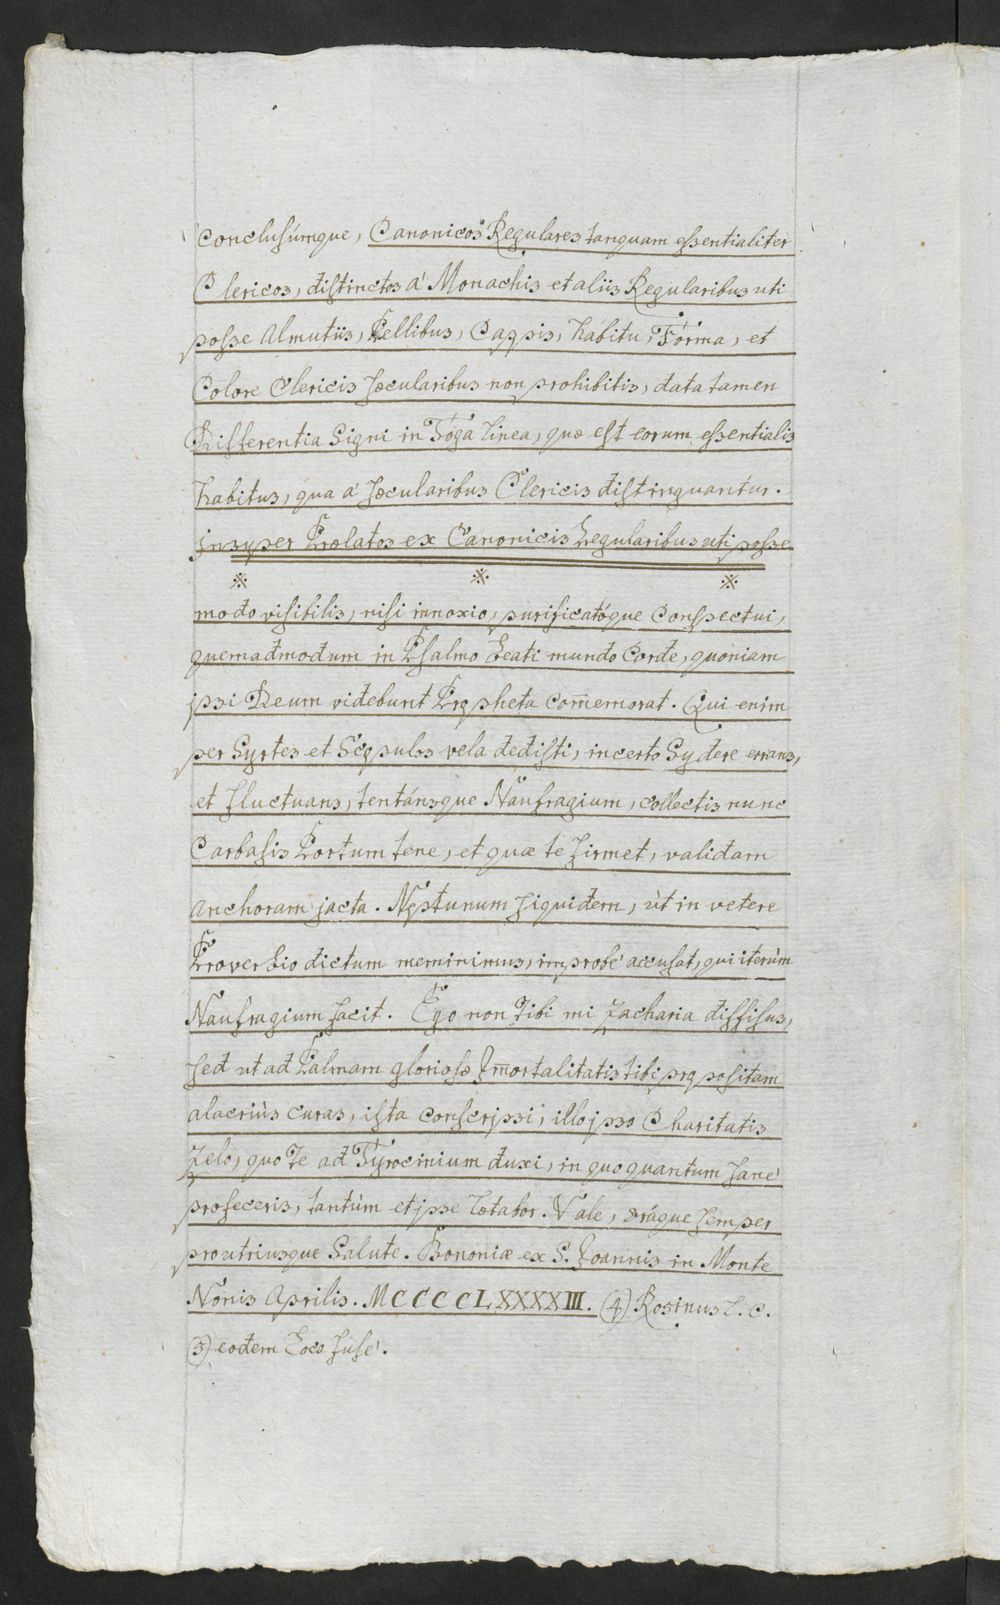 conclusúmque, Canonicos Regulares tanquam essentialiter
Clericos, distinctos á Monachis et aliis Regularibus uti
posse Almutiis, Pellibus, Cappis, habitu, Forma, et
Colore Clericis sæcularibus non prohibitis, data tamen
Differentia Signi in Toga linea, quæ est eorum essentialis
habitus, qua á sæcularibus Clericis distinguantur.
insuper Prælatos ex Canonicis Regularibus uti posse
※ ※ ※
modo visibilis, nisi innoxio, purificatóque Conspectui,
quemadmodum in Psalmo beati mundo Corde, quoniam
ipsi Deum videbunt Propheta Com̄emorat. Qui enim
per Syrtes et Scopulos vela dedisti, incerto Sydere errans,
et fluctuans, tentánsque Naufragium, collectis nunc
Carbasis Portum tene, et quæ te firmet, validam
anchoram jacta. Neptunum siquidem, ùt in vetere
Proverbio dictum meminimus, improbé accusat, qui iterùm
Naufragium facit. Ego non Tibi mi Zacharia diffisus,
sed ut ad Palmam gloriosæ Im̄ortalitatis tibi propositam
alacriùs curas, ista conscripsi, illo ipso Charitatis
Zelo, quo Te ad Tyrocinium duxi, in quo quantum sané
profeceris, tantùm et ipse lætabor. Vale, oráque semper
pro utriusque Salute. Bononiæ ex S. Joannis in Monte
Nonis Aprilis. MCCCCLXXXXIII. (4) Rosinus l. c.
5) eodem Loco fusé.